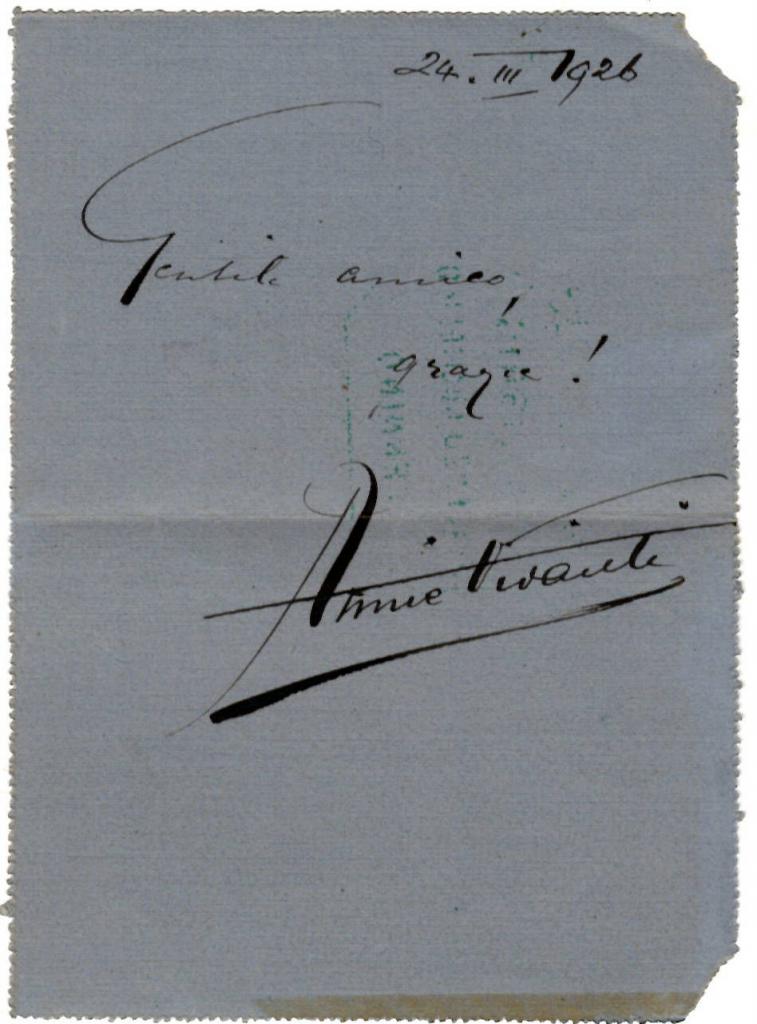 24. III 1926
Gentile amico,
grazie!
Annie Vivanti